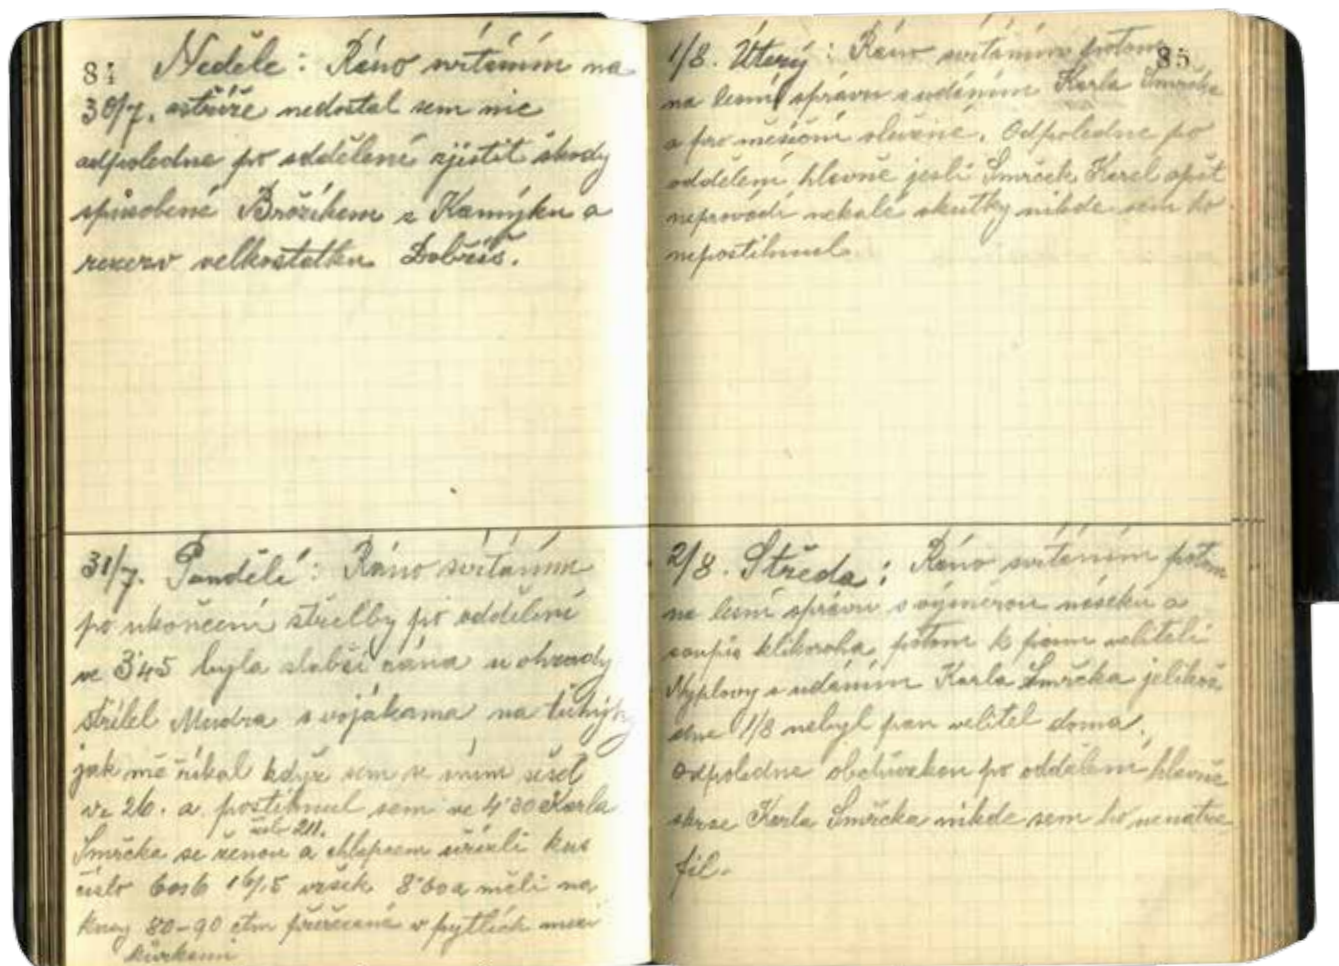 84 Neděle: Ráno svítáním na
30/7. nedostal sem nic
odpoledne po oddělení zjistit škody
spůsobené Brožíkem z Kamýku a
rezerv velkostatku Dobříš.
31/7. Pondělí: Ráno svítáním
po ukončení střelby po oddělení
ve 3'45 byla slabší rána u ohrady
střílel Mudra s vojákama na
jak mě říkal když sem se s ním sešel
ve 26. a postihnul sem ve 4'30 Karla
211.
Smrčka se ženou a chlapcem uřízli kus
číslo 16/15 vršek 8'60 a měli na
kusy 80-90 ctm přeřezané v pytlích mezi
kůrkami
85
1/8. Úterý: Ráno svítáním potom
na lesní správu s udáním Karla Smrčka
a pro měsíční služné. Odpoledne po
oddělení hlavně jesli Smrček Karel opět
neprovádí nekalé skutky nikde sem ho
nepostihnul.
2/8. Středa: Ráno svítáním potom
na lesní správu s výměrou náseků a
soupis klikoroha potom k panu veliteli
Nyplovy s udáním Karla Smrčka jelikož
dne 1/8 nebyl pan velitel doma.
Odpoledne obchůzkou po oddělení hlavně
skrze Karla Smrčka nikde sem ho nenatre
fil.